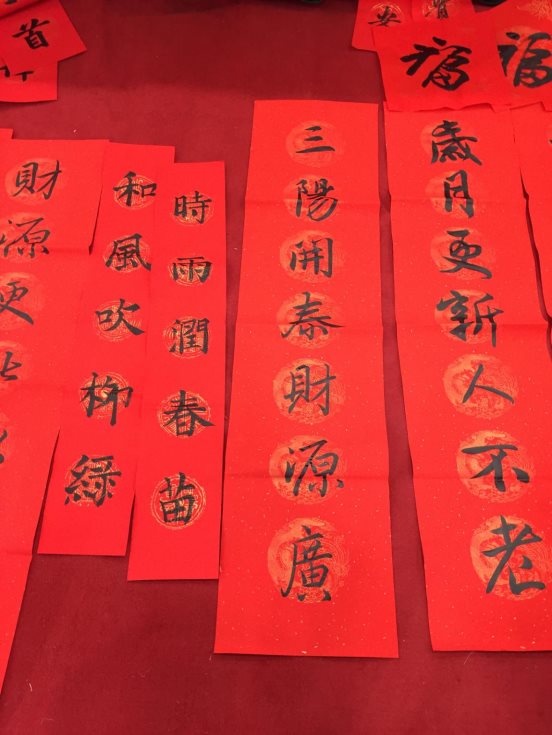 首
安
福
福
歲月更新人不老
三陽開泰財源廣
時雨潤春苗
和風吹柳綠
財源更